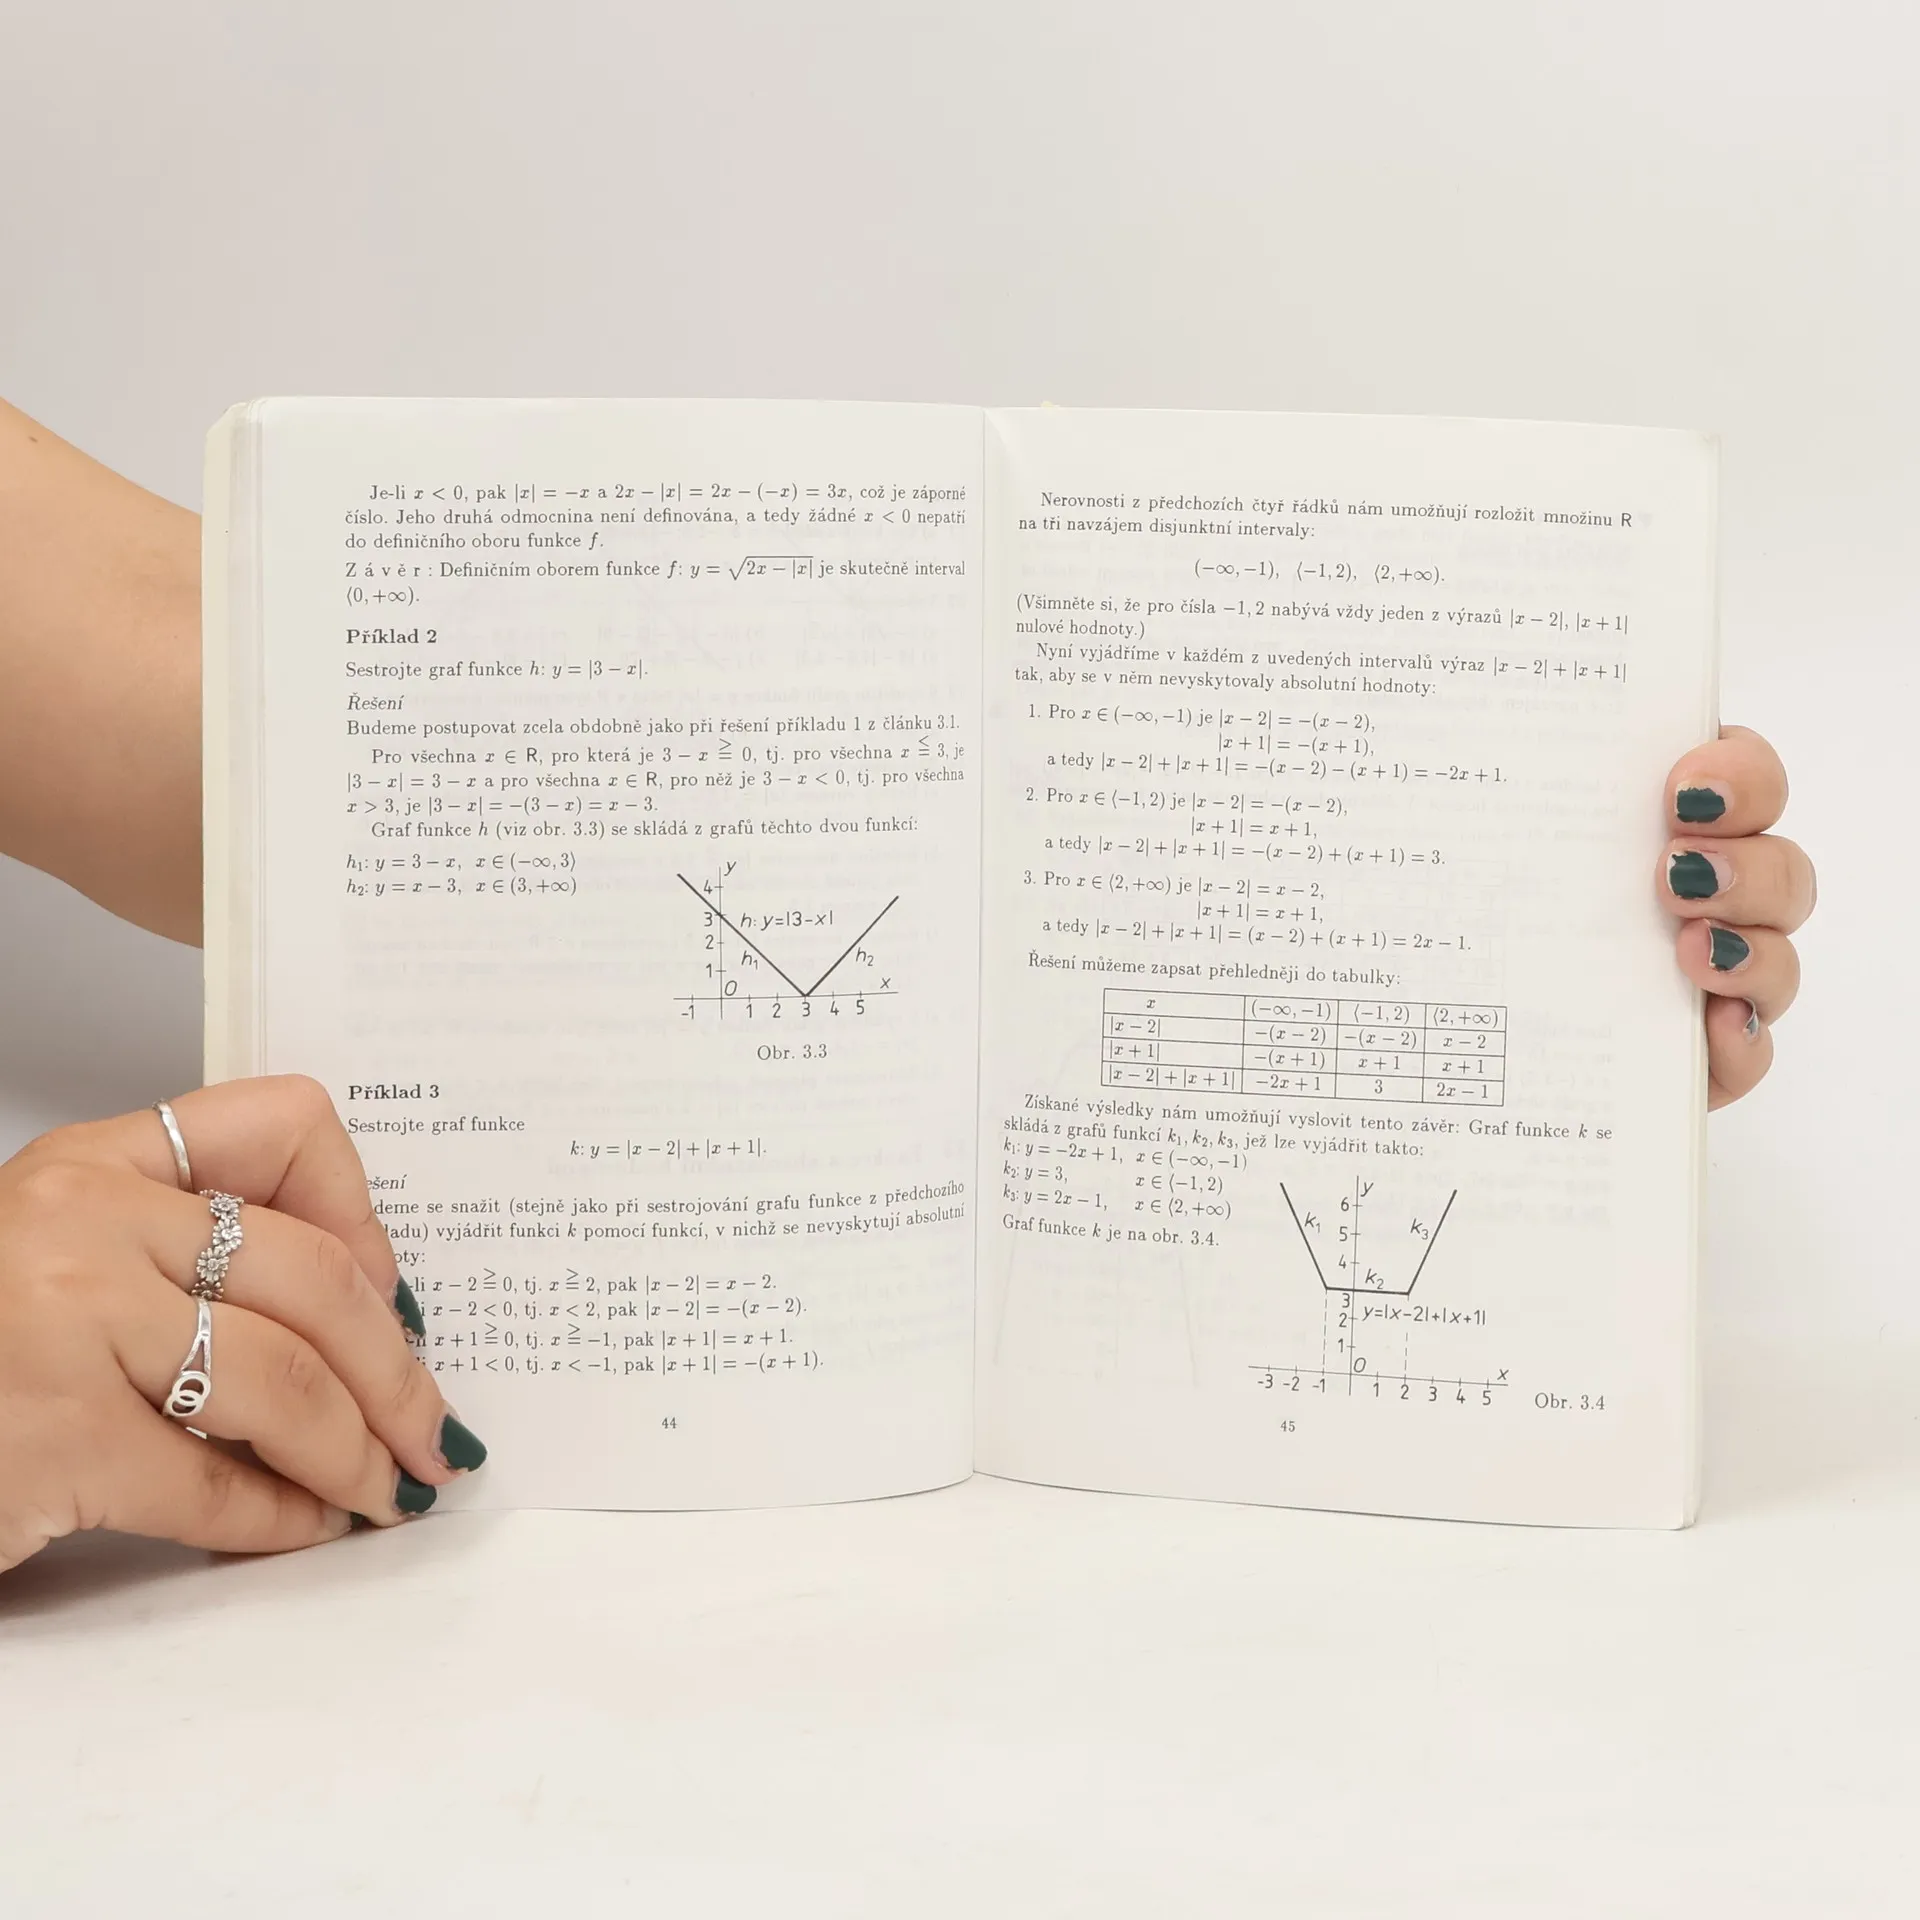 Je-li x < 0, pak |x| = −x a 2x − |x| = 2x − (−x) = 3x, což je záporné
číslo. Jeho druhá odmocnina není definována, a tedy žádné x < 0 nepatří
do definičního oboru funkce f.
Závěr: Definičním oborem funkce f: y = √(2x − |x|) je skutečně interval
⟨0, +∞).
Příklad 2
Sestrojte graf funkce h: y = |3 − x|.
Řešení
Budeme postupovat zcela obdobně jako při řešení příkladu 1 z článku 3.1.
Pro všechna x ∈ R, pro která je 3 − x ≧ 0, tj. pro všechna x ≦ 3, je
|3 − x| = 3 − x a pro všechna x ∈ R, pro něž je 3 − x < 0, tj. pro všechna
x > 3, je |3 − x| = −(3 − x) = x − 3.
Graf funkce h (viz obr. 3.3) se skládá z grafů těchto dvou funkcí:
h₁: y = 3 − x, x ∈ (−∞, 3⟩
h₂: y = x − 3, x ∈ (3, +∞)
y
4
3 h: y=|3-x|
2
h₁ h₂
1
0 x
-1 1 2 3 4 5
Obr. 3.3
Příklad 3
Sestrojte graf funkce
k: y = |x − 2| + |x + 1|.
ešení
deme se snažit (stejně jako při sestrojování grafu funkce z předchozího
ladu) vyjádřit funkci k pomocí funkcí, v nichž se nevyskytují absolutní
oty:
-li x − 2 ≧ 0, tj. x ≧ 2, pak |x − 2| = x − 2.
i x − 2 < 0, tj. x < 2, pak |x − 2| = −(x − 2).
x + 1 ≧ 0, tj. x ≧ −1, pak |x + 1| = x + 1.
x + 1 < 0, tj. x < −1, pak |x + 1| = −(x + 1).
44
Nerovnosti z předchozích čtyř řádků nám umožňují rozložit množinu R
na tři navzájem disjunktní intervaly:
(−∞, −1), ⟨−1, 2), ⟨2, +∞).
(Všimněte si, že pro čísla −1, 2 nabývá vždy jeden z výrazů |x − 2|, |x + 1|
nulové hodnoty.)
Nyní vyjádříme v každém z uvedených intervalů výraz |x − 2| + |x + 1|
tak, aby se v něm nevyskytovaly absolutní hodnoty:
1. Pro x ∈ (−∞, −1) je |x − 2| = −(x − 2),
|x + 1| = −(x + 1),
a tedy |x − 2| + |x + 1| = −(x − 2) − (x + 1) = −2x + 1.
2. Pro x ∈ ⟨−1, 2) je |x − 2| = −(x − 2),
|x + 1| = x + 1,
a tedy |x − 2| + |x + 1| = −(x − 2) + (x + 1) = 3.
3. Pro x ∈ ⟨2, +∞) je |x − 2| = x − 2,
|x + 1| = x + 1,
a tedy |x − 2| + |x + 1| = (x − 2) + (x + 1) = 2x − 1.
Řešení můžeme zapsat přehledněji do tabulky:
x (−∞, −1) ⟨−1, 2) ⟨2, +∞)
|x − 2| −(x − 2) −(x − 2) x − 2
|x + 1| −(x + 1) x + 1 x + 1
|x − 2| + |x + 1| −2x + 1 3 2x − 1
Získané výsledky nám umožňují vyslovit tento závěr: Graf funkce k se
skládá z grafů funkcí k₁, k₂, k₃, jež lze vyjádřit takto:
k₁: y = −2x + 1, x ∈ (−∞, −1)
k₂: y = 3, x ∈ ⟨−1, 2)
k₃: y = 2x − 1, x ∈ ⟨2, +∞)
Graf funkce k je na obr. 3.4.
y
6
k₁ k₃
5
4
k₂
3
2 y=|x-2|+|x+1|
1
0 x
-3 -2 -1 1 2 3 4 5
Obr. 3.4
45